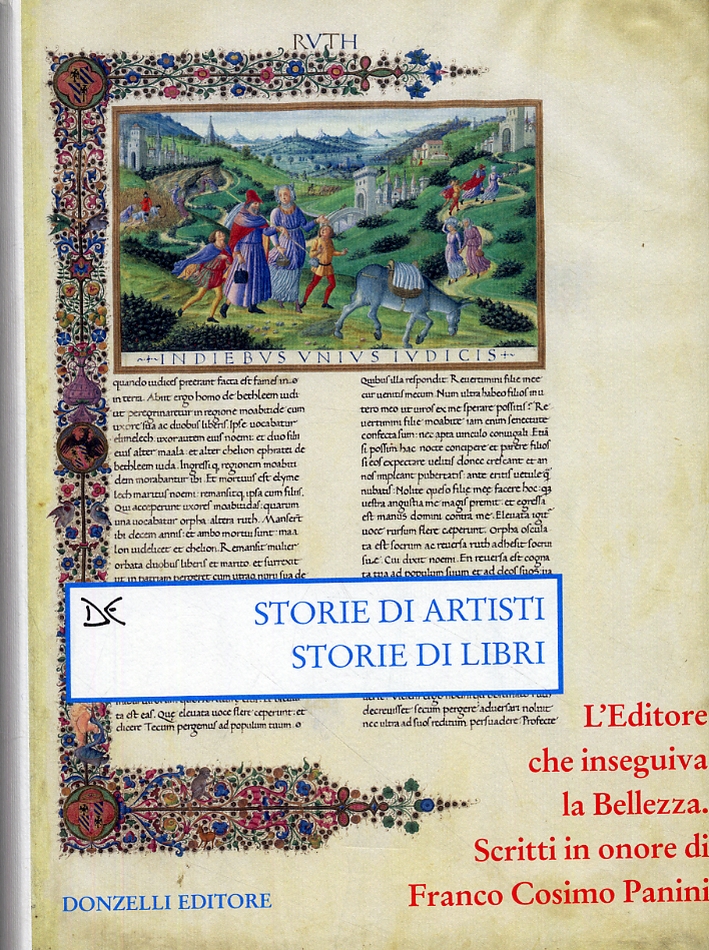 RVTH
INDIEBVS VNIVS IVDICIS
quando iudices preerant facta est fames in
in terra. Abiit ergo homo de bethleem iudi
ut peregrinaretur in regione moabitide cum
uxore sua ac duobus liberis. Ipse vocabatur
elimelech. uxor autem eius noemi: et duo filii
eius alter maala: et alter chelion ephratei de
bethleem iuda. Ingressiq regionem moabiti
dem morabantur ibi. Et mortuus est elyme
lech maritus noemi: remansitq ipsa cum filiis.
Qui acceperunt uxores moabitidas: quarum
una vocabatur orpha: altera ruth. Manserunt
ibi decem annis: et ambo mortui sunt: maa
lon videlicet et chelion. Remansit mulier
orbata duobus liberis et marito. et surrexit
ut in patriam pergeret cum utraq nuru sua de
Quibus illa respondit. Revertimini filie mee
cur venitis mecum. Num ultra habeo filios in u
tero meo ut viros ex me sperare possitis? Re
vertimini filie moabite: iam enim senectute
confecta sum: nec apta vinculo coniugali. Etia
si possim hac nocte concipere et parere filios
si eos expectare velitis donec crescant et an
nos impleant pubertatis: ante eritis vetule q
nubatis: Nolite queso filie mee facere hoc: qa
vestra angustia me magis premit: et egressa
est manus domini contra me. Elevata igit
voce rursum flere ceperunt. Orpha oscula
ta est socrum ac reversa ruth adhesit socrui
sue. Cui dixit noemi. En reversa est cogna
ta tua ad populum suum et ad deos suos
DE
STORIE DI ARTISTI
STORIE DI LIBRI
ta est eas. Que elevata voce flere ceperunt: et
dicere Tecum pergemus ad populum tuum.
decrevisset secum pergere adversari noluit
nec ultra ad suos reditum persuadere Profecte
L'Editore
che inseguiva
la Bellezza.
Scritti in onore di
Franco Cosimo Panini
DONZELLI EDITORE